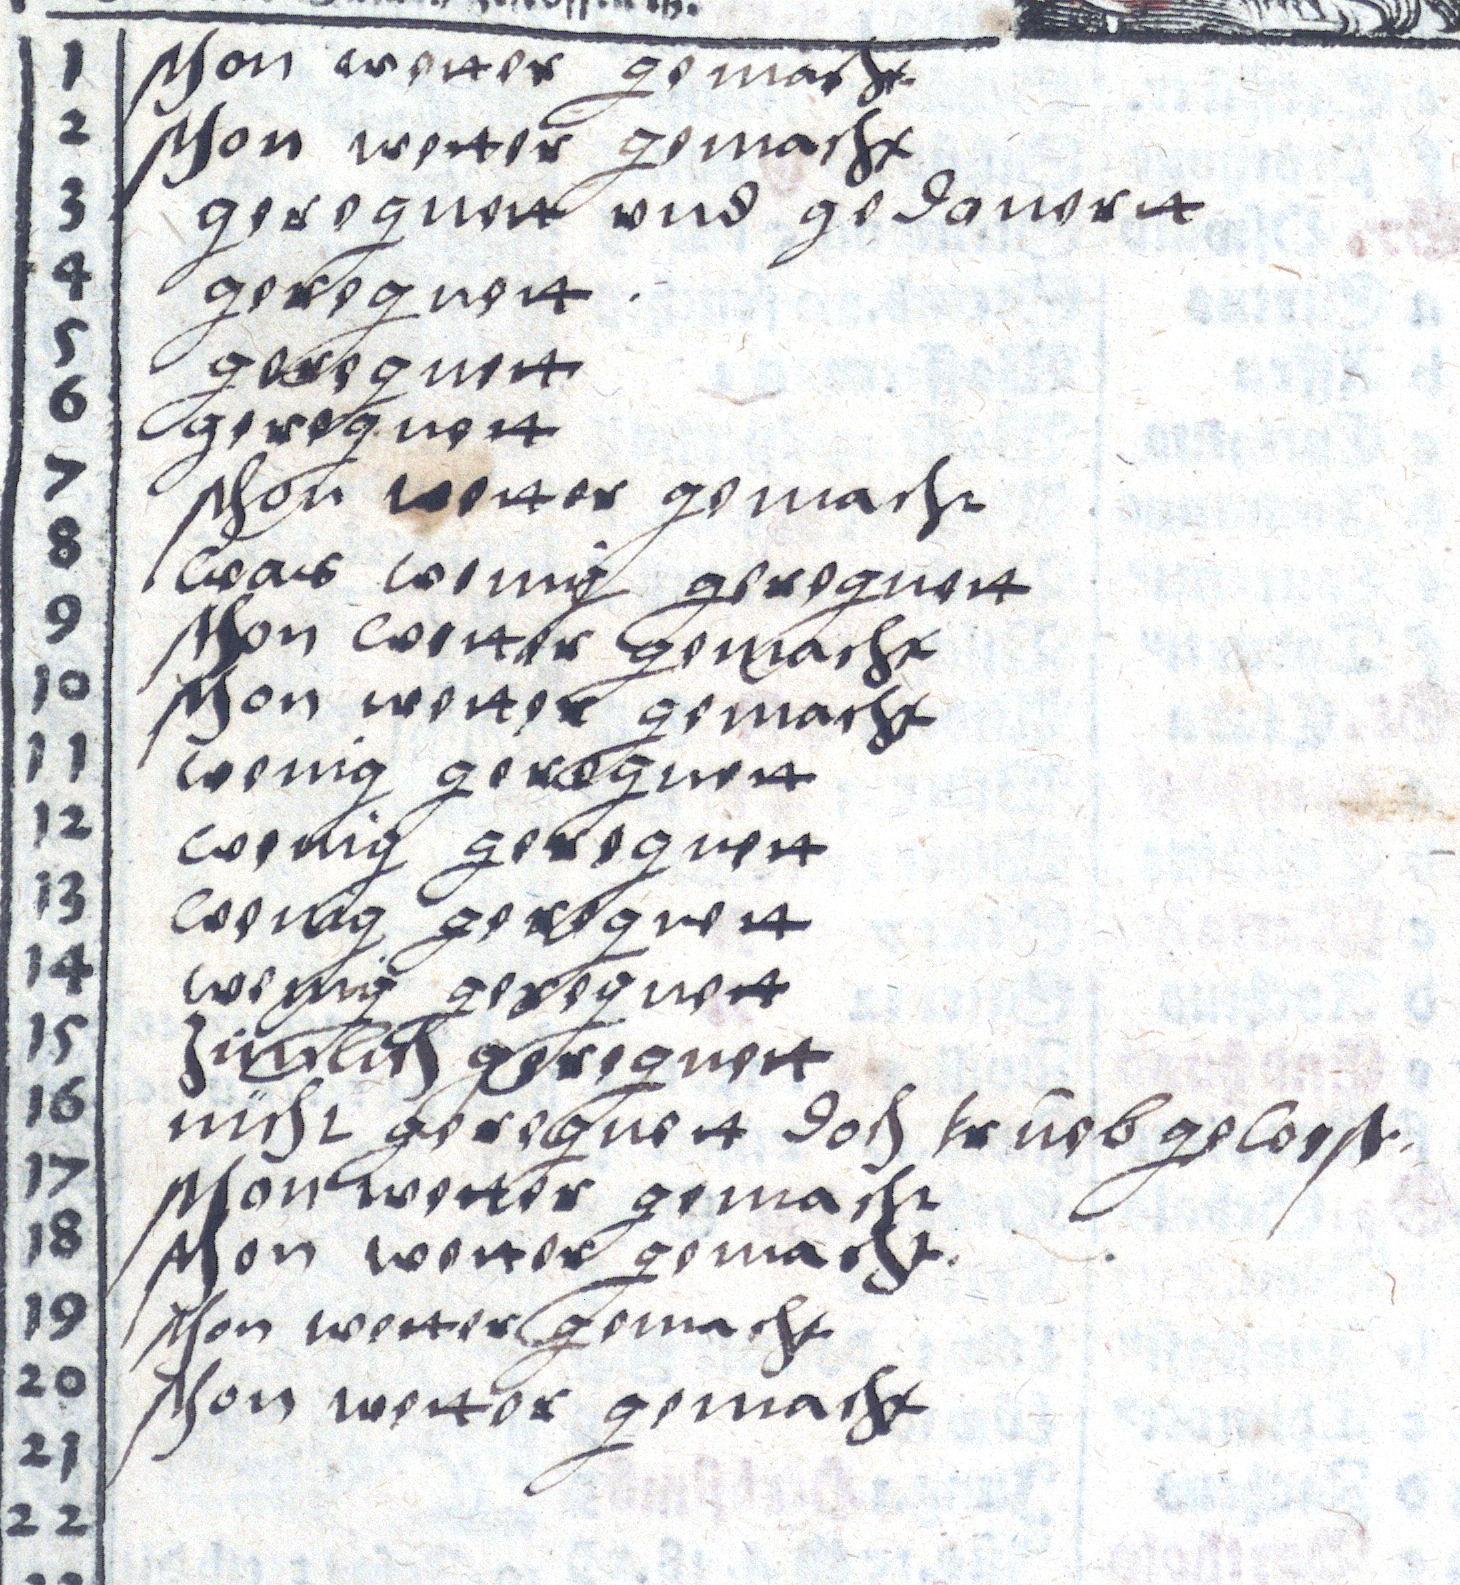 1 schon wetter gemacht
2 schon wetter gemacht
3 geregnett vnd gedonnertt
4 geregnett.
5 geregnett
6 geregnett
7 schon wetter gemacht
8 was wenig geregnett
9 schon wetter gemacht
10 schon wetter gemacht
11 wenig geregnett
12 wenig geregnett
13 wenig geregnett
14 wenig geregnett
15 Zimlich geregnett
16 nicht geregnett doch trüeb gewest.
17 schon wetter gemacht
18 schon wetter gemacht.
19 schon wetter gemacht
20 schon wetter gemacht
21
22